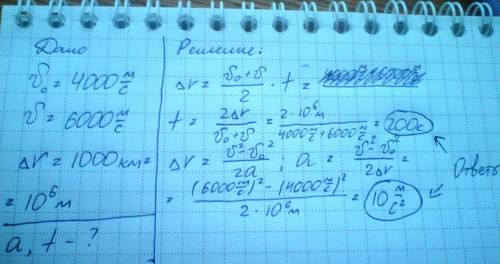 Дано
v₀ = 4000 м/с
v = 6000 м/с
Δr = 1000 км =
= 10⁶ м
a, t - ?
Решение:
Δr = (v₀ + v)/2 · t =
t = 2Δr/(v₀ + v) = 2·10⁶ м/(4000 м/с + 6000 м/с) = 200 с
Δr = (v² - v₀²)/2a ; a = (v² - v₀²)/2Δr =
= ((6000 м/с)² - (4000 м/с)²)/(2·10⁶ м) = 10 м/с²
Ответы